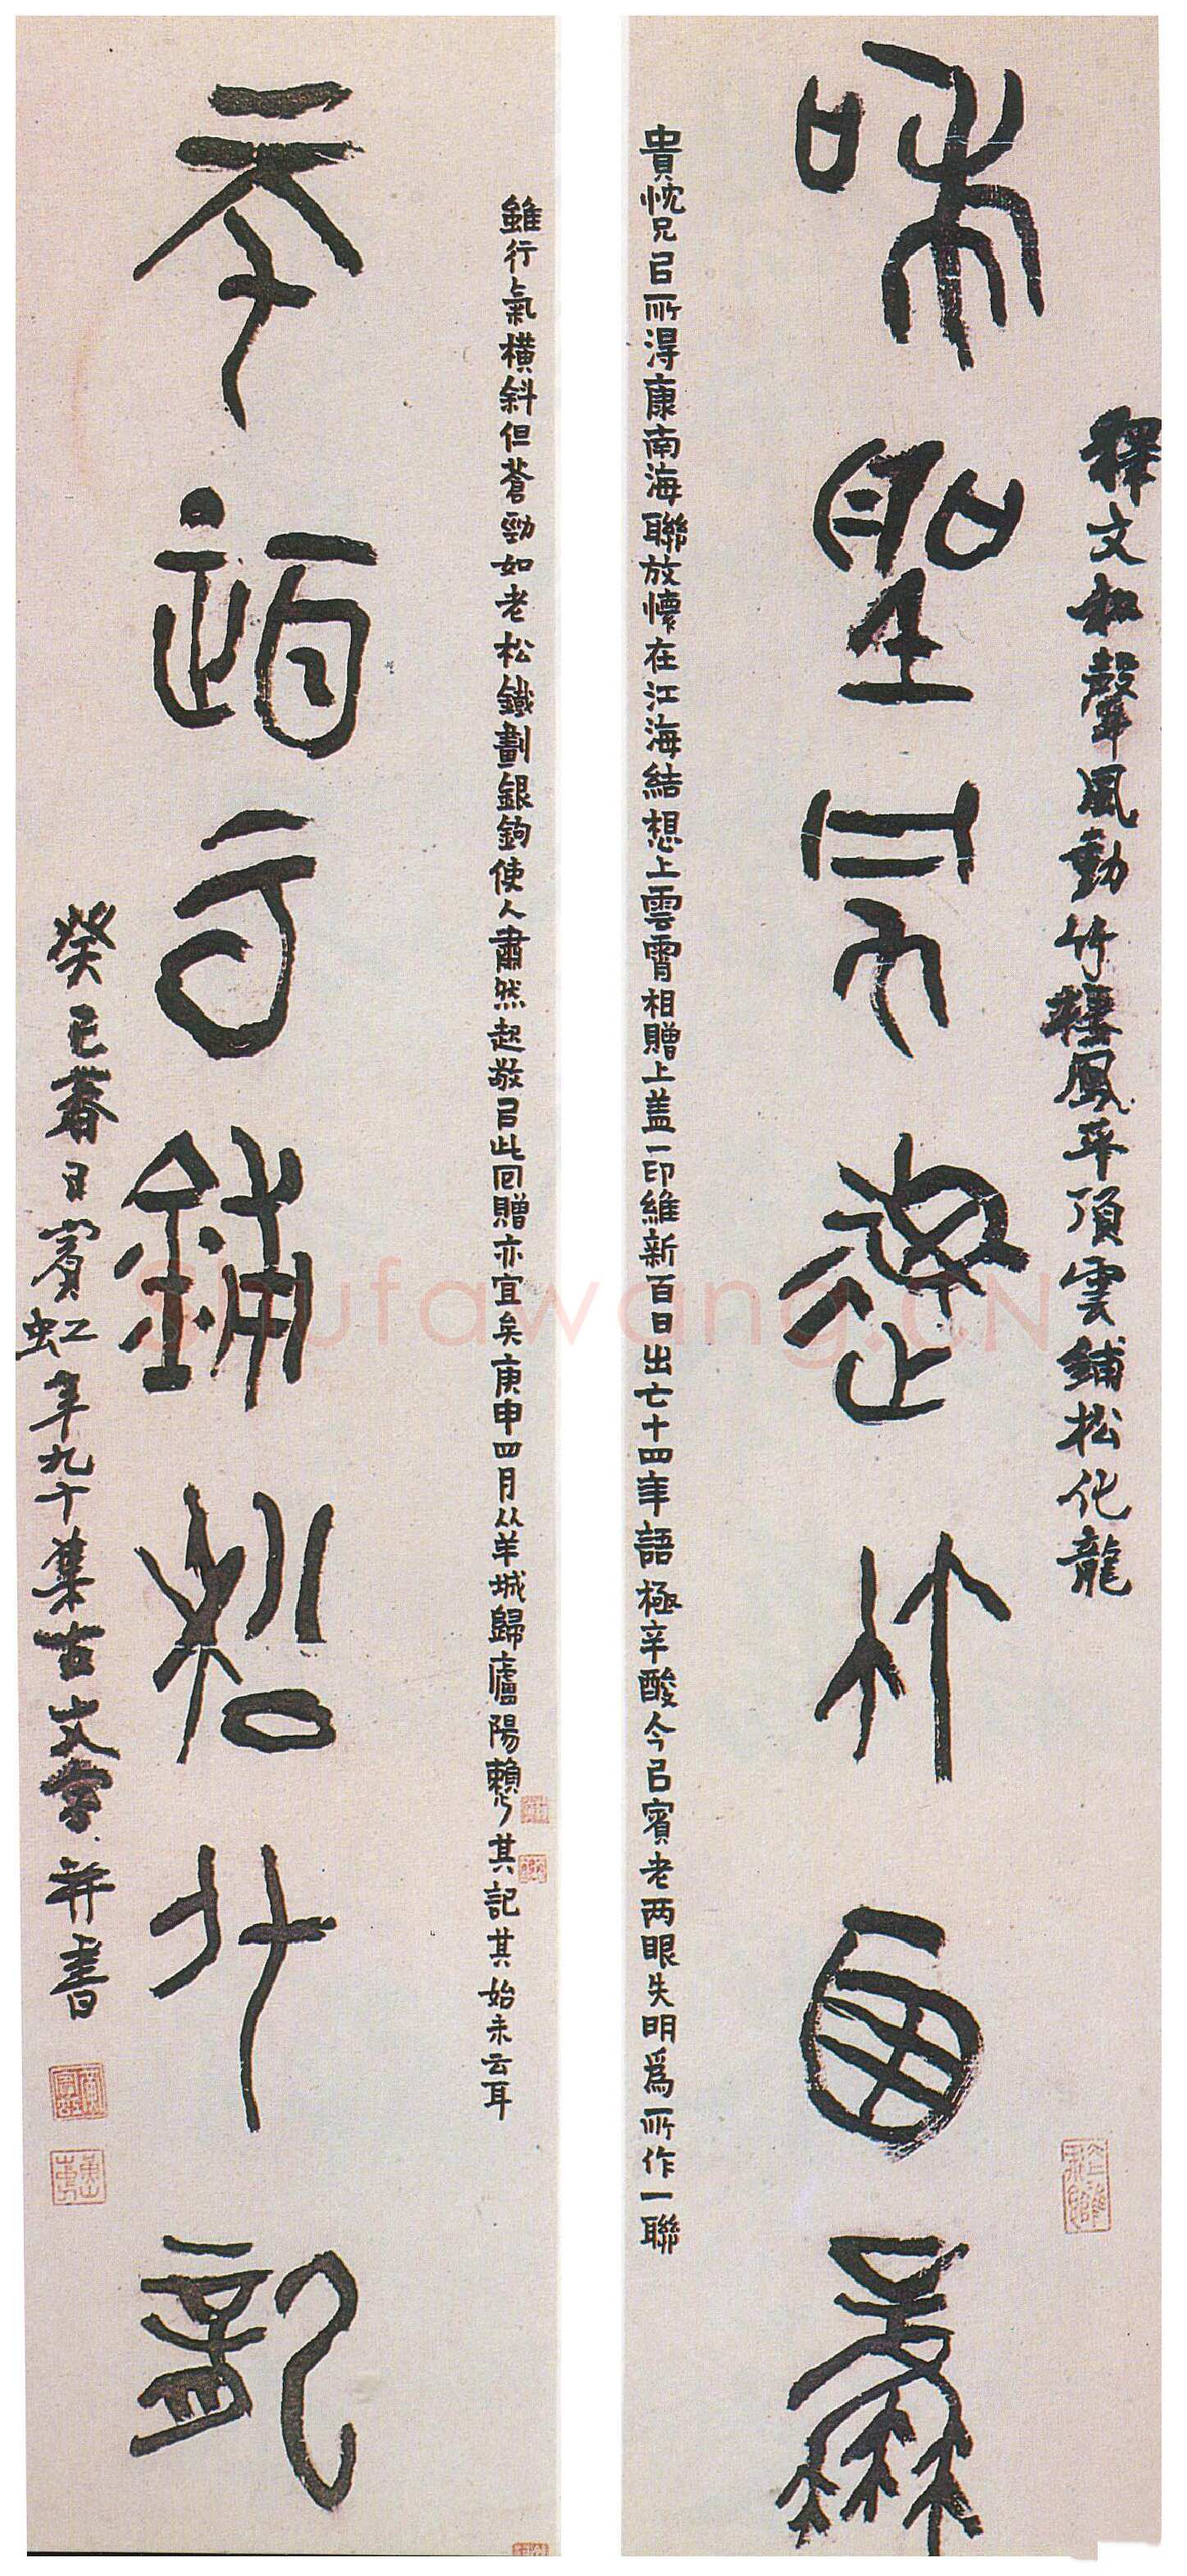 释文和聲風動竹棲鳳平頂雲鋪松化龍
和聲風動竹棲鳳
貴忱兄㠯所得康南海聯放懷在江海結想上雲霄相贈上蓋一印維新百日出亡十四年語極辛酸今㠯賓老两眼失明為所作一聯
雖行氣橫斜但蒼勁如老松鐵劃銀鉤使人肅然起敬㠯此回贈亦宜矣庚申四月从羊城歸廬陽賴少其記其始末云耳
平頂雲鋪松化龍
癸巳春日賓虹年九十集古文字并書
shufawang.CN